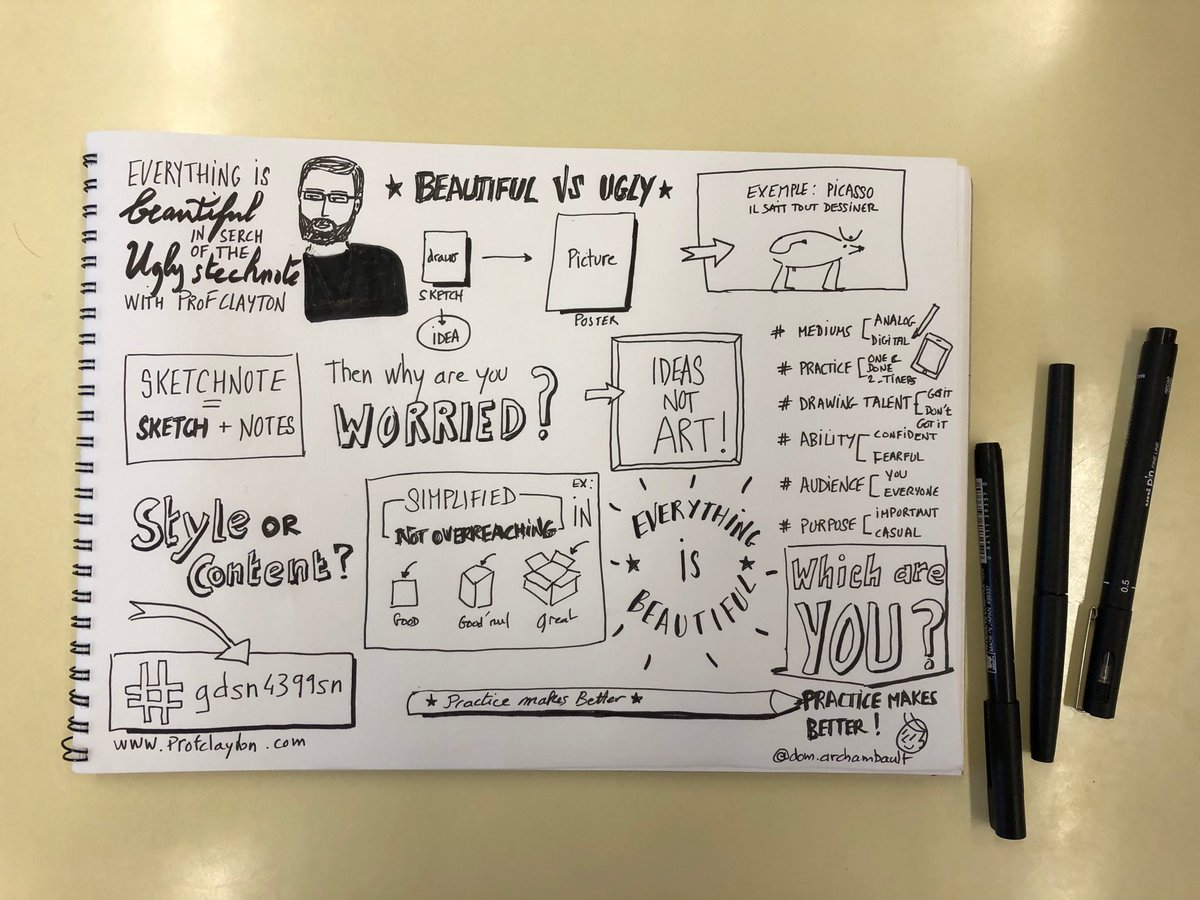 EVERYTHING IS
beautiful
IN SERCH
OF THE
Ugly stechnote
WITH PROF CLAYTON
★ BEAUTIFUL VS UGLY ★
draws
SKETCH
IDEA
Picture
POSTER
EXEMPLE: PICASSO
IL SAIT TOUT DESSINER
SKETCHNOTE
=
SKETCH + NOTES
Then why are you
WORRIED?
IDEAS
NOT
ART!
# MEDIUMS
ANALOG
DIGITAL
# PRACTICE
ONE &
DONE
2_TIMERS
# DRAWING TALENT
GOT IT
DON'T
GOT IT
# ABILITY
CONFIDENT
FEARFUL
# AUDIENCE
YOU
EVERYONE
# PURPOSE
IMPORTANT
CASUAL
Style OR
Content?
EX:
SIMPLIFIED
NOT OVERREACHING
IN
GOOD
great
EVERYTHING
★ IS ★
BEAUTIFUL
Which are
YOU?
#gdsn4399sn
www.Profclayton.com
★ Practice makes Better ★
PRACTICE MAKES
BETTER!
@dom.archambault
0.5